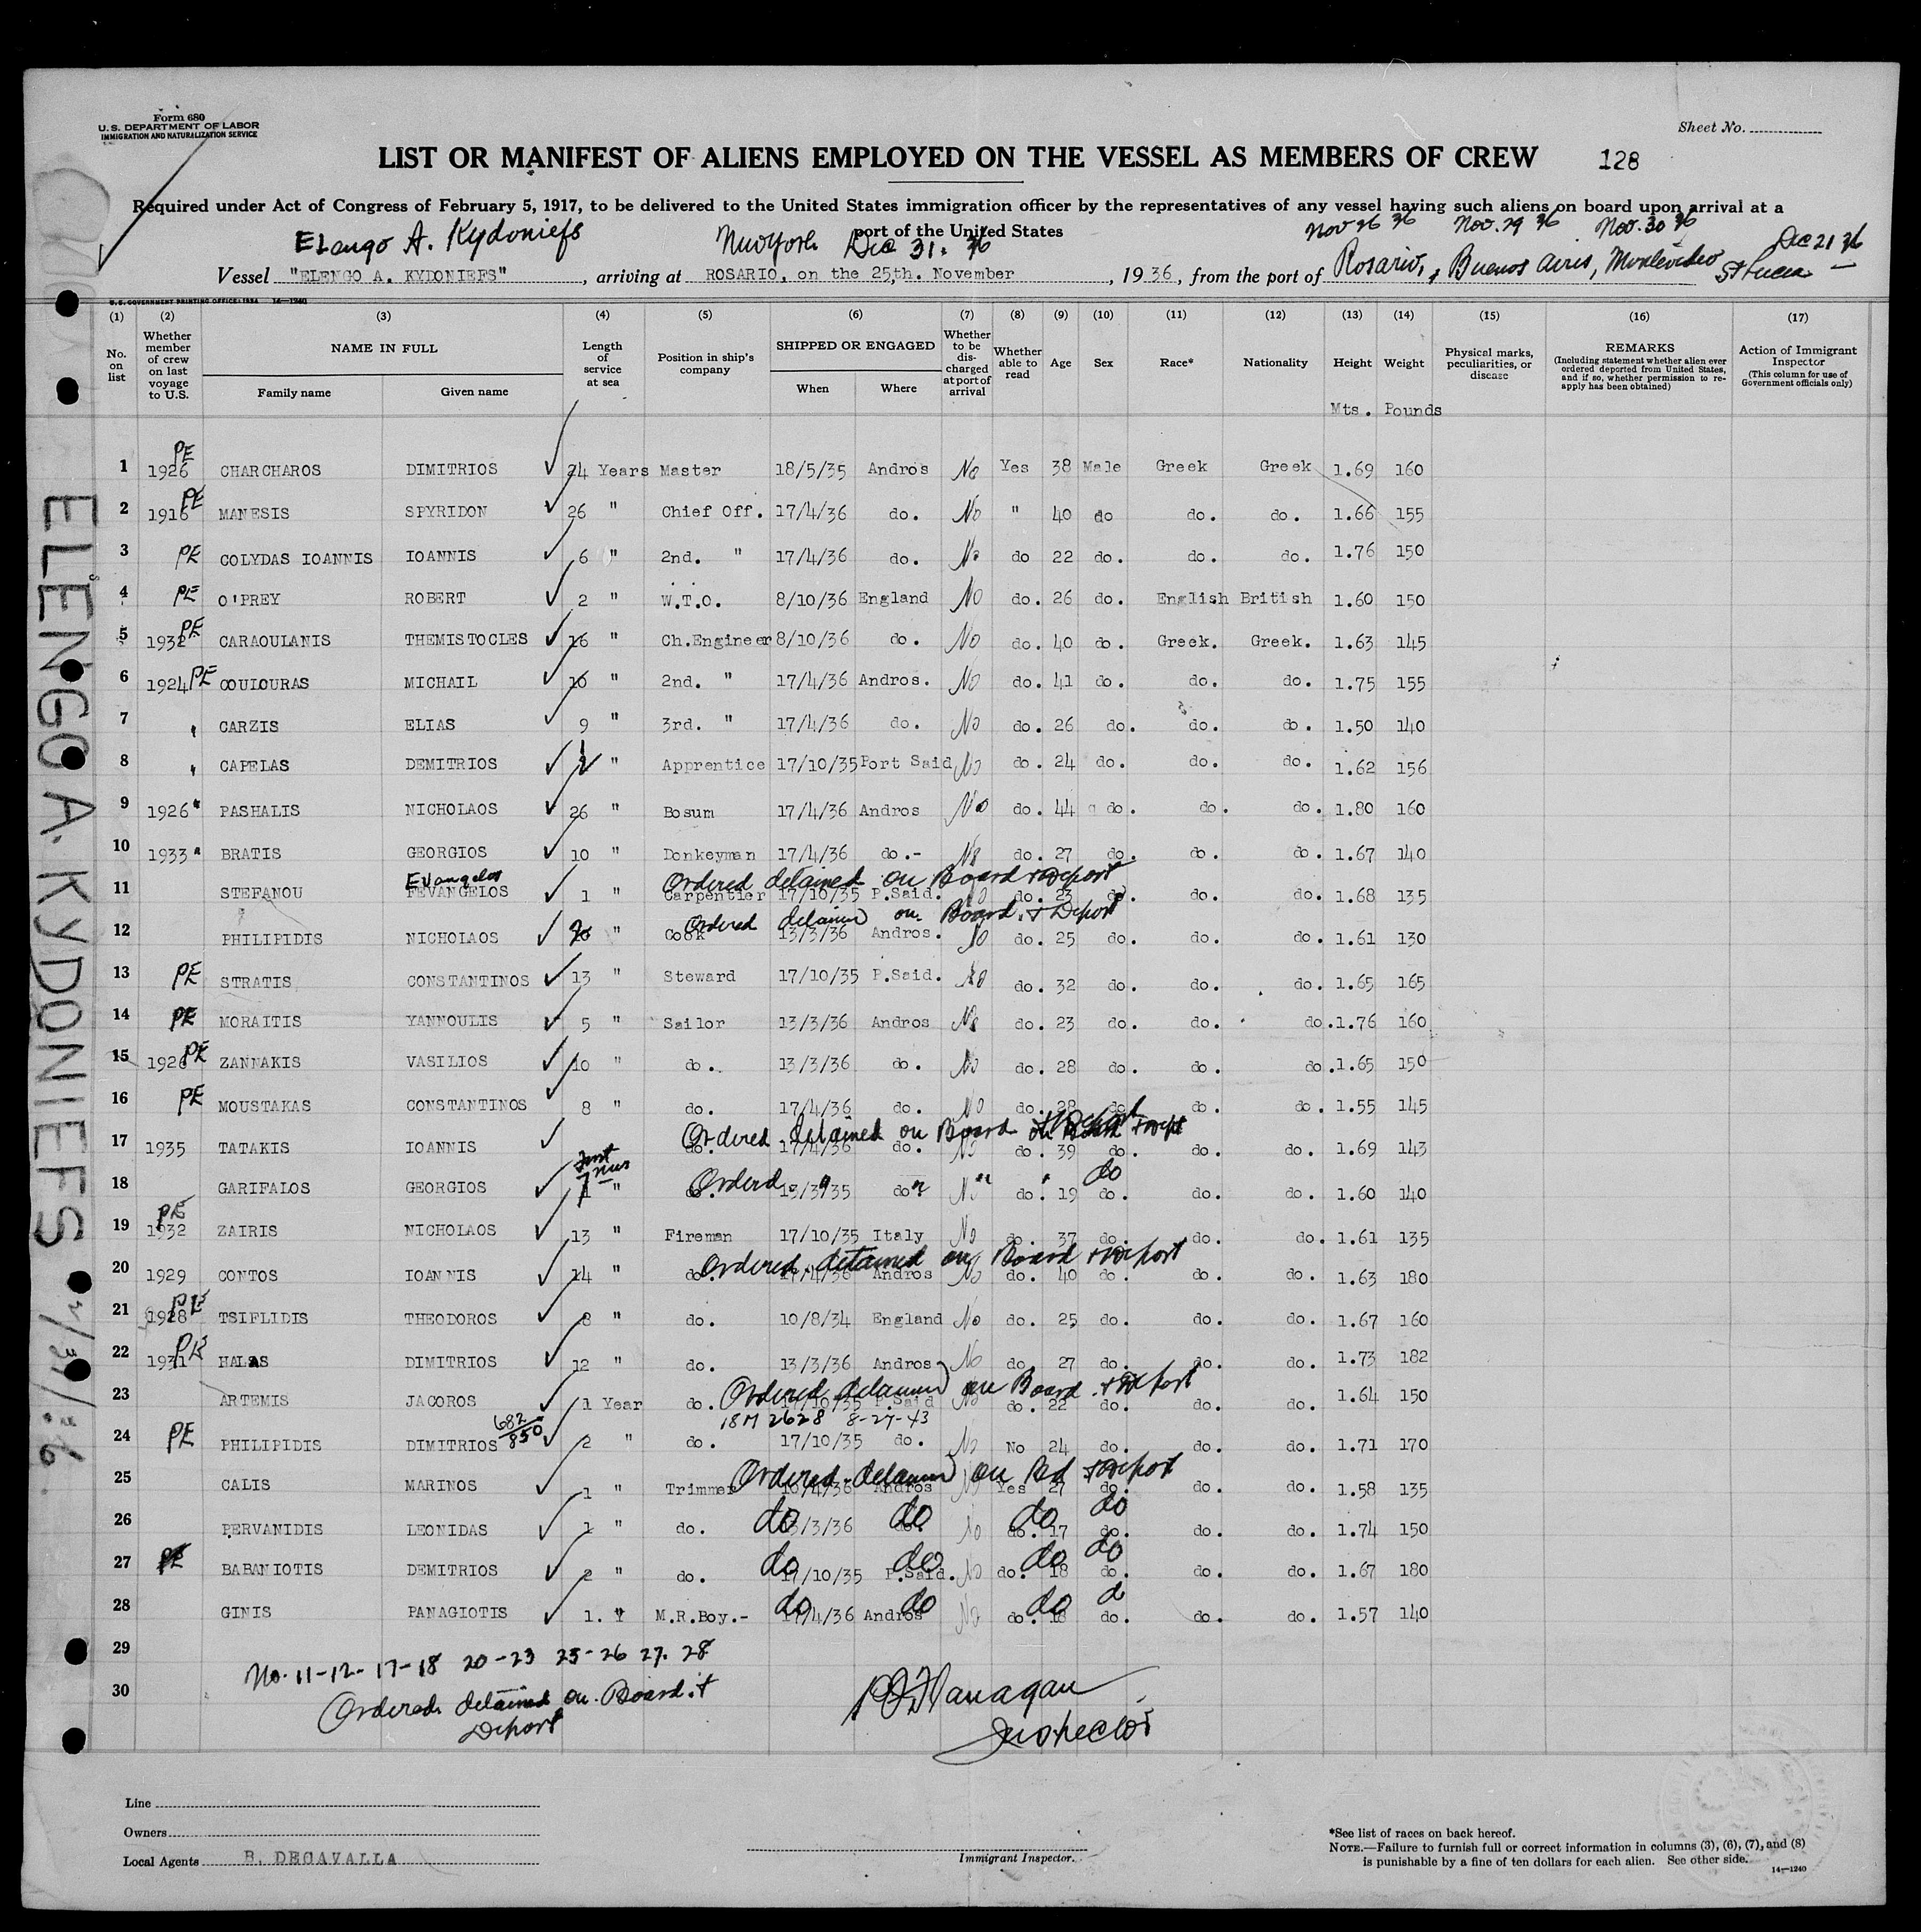 Form 680
U. S. DEPARTMENT OF LABOR
IMMIGRATION AND NATURALIZATION SERVICE
Sheet No.
LIST OR MANIFEST OF ALIENS EMPLOYED ON THE VESSEL AS MEMBERS OF CREW 128
Required under Act of Congress of February 5, 1917, to be delivered to the United States immigration officer by the representatives of any vessel having such aliens on board upon arrival at a
port of the United States
Elengo A. Kydoniefs New York Dec 31. 36 Nov 26 36 Nov. 29 36 Nov. 30 36 Dec 21 36
Vessel "ELENGO A. KYDONIEFS", arriving at ROSARIO, on the 25th. November, 1936, from the port of Rosario, Buenos Aires, Montevideo St Lucia
U. S. GOVERNMENT PRINTING OFFICE: 1934 14—1240
(1) (2) (3) (4) (5) (6) (7) (8) (9) (10) (11) (12) (13) (14) (15) (16) (17)
No. on list
Whether member of crew on last voyage to U.S.
NAME IN FULL
Family name Given name
Length of service at sea
Position in ship's company
SHIPPED OR ENGAGED
When Where
Whether to be discharged at port of arrival
Whether able to read
Age
Sex
Race*
Nationality
Height
Weight
Physical marks, peculiarities, or disease
REMARKS
(Including statement whether alien ever ordered deported from United States, and if so, whether permission to reapply has been obtained)
Action of Immigrant Inspector
(This column for use of Government officials only)
Mts. Pounds
1 1926 PE CHARCHAROS DIMITRIOS 24 Years Master 18/5/35 Andros No Yes 38 Male Greek Greek 1.69 160
2 1916 PE MANESIS SPYRIDON 26 " Chief Off. 17/4/36 do. No " 40 do do. do. 1.66 155
3 PE COLYDAS IOANNIS IOANNIS 6 " 2nd. " 17/4/36 do. No do 22 do. do. do. 1.76 150
4 PE O'PREY ROBERT 2 " W.T.O. 8/10/36 England No do. 26 do. English British 1.60 150
5 1932 PE CARAOULANIS THEMISTOCLES 16 " Ch.Engineer 8/10/36 do. No do. 40 do. Greek. Greek. 1.63 145
6 1924 PE COULOURAS MICHAIL 10 " 2nd. " 17/4/36 Andros. No do. 41 do. do. do. 1.75 155
7 " CARZIS ELIAS 9 " 3rd. " 17/4/36 do. No do. 26 do. do. do. 1.50 140
8 " CAPELAS DEMITRIOS " Apprentice 17/10/35 Port Said No do. 24 do. do. do. 1.62 156
9 1926 " PASHALIS NICHOLAOS 26 " Bosum 17/4/36 Andros No do. 44 do. do. do. 1.80 160
10 1933 " BRATIS GEORGIOS 10 " Donkeyman 17/4/36 do.- No do. 27 do. do. do. 1.67 140
Evangelos Ordered detained on Board & Deport
11 STEFANOU FEVANGELOS 1 " Carpentier 17/10/35 P.Said. No do. 23 do. do. do. 1.68 135
Ordered detained on Board & Deport
12 PHILIPIDIS NICHOLAOS " Cook 13/3/36 Andros. No do. 25 do. do. do. 1.61 130
13 PE STRATIS CONSTANTINOS 13 " Steward 17/10/35 P.Said. No do. 32 do. do. do. 1.65 165
14 PE MORAITIS YANNOULIS 5 " Sailor 13/3/36 Andros No do. 23 do. do. do. 1.76 160
15 1926 PE ZANNAKIS VASILIOS 10 " do. 13/3/36 do. No do. 28 do. do. do. 1.65 150
16 PE MOUSTAKAS CONSTANTINOS 8 " do. 17/4/36 do. No do. 28 do. do. do. 1.55 145
Ordered detained on Board & Deport
17 1935 TATAKIS IOANNIS do. 17/4/36 do. No do. 39 do. do. do. 1.69 143
18 GARIFALOS GEORGIOS 1 " do. Ordered 13/3/35 do. No do. 19 do. do do. do. 1.60 140
19 1932 PE ZAIRIS NICHOLAOS 13 " Fireman 17/10/35 Italy No do. 37 do. do. do. 1.61 135
Ordered detained on Board & Deport
20 1929 CONTOS IOANNIS 14 " do. 17/4/36 Andros No do. 40 do. do. do. 1.63 180
21 1928 PE TSIFLIDIS THEODOROS 8 " do. 10/8/34 England No do. 25 do. do. do. 1.67 160
22 1931 PE HALAS DIMITRIOS 12 " do. 13/3/36 Andros No do. 27 do. do. do. 1.73 182
Ordered detained on Board & Deport
23 ARTEMIS JACOROS 1 Year do. 17/10/35 P.Said No do. 22 do. do. do. 1.64 150
682/850 18M 2628 8-27-43
24 PE PHILIPIDIS DIMITRIOS 2 " do. 17/10/35 do. No No 24 do. do. do. 1.71 170
Ordered detained on Bd & Deport
25 CALIS MARINOS 1 " Trimmer 16/4/36 Andros No Yes 27 do. do. do. 1.58 135
do do do do
26 PERVANIDIS LEONIDAS 1 " do. 13/3/36 do. No do. 17 do. do. do. 1.74 150
do do do do
27 PE BABANIOTIS DEMITRIOS 2 " do. 17/10/35 P.Said. No do. 18 do. do. do. 1.67 180
do do do do
28 GINIS PANAGIOTIS 1. " M.R.Boy.- 17/4/36 Andros No do. 18 do. do. do. 1.57 140
29
30
No. 11-12-17-18 20-23 25-26 27. 28
Ordered detained on Board &
Deport
Flanagan
Inspector
ELENGO A. KYDONIEFS 12/31/36
Line
Owners
Local Agents B. DECAVALLA
Immigrant Inspector.
*See list of races on back hereof.
NOTE.—Failure to furnish full or correct information in columns (3), (6), (7), and (8)
is punishable by a fine of ten dollars for each alien. See other side.
14—1240